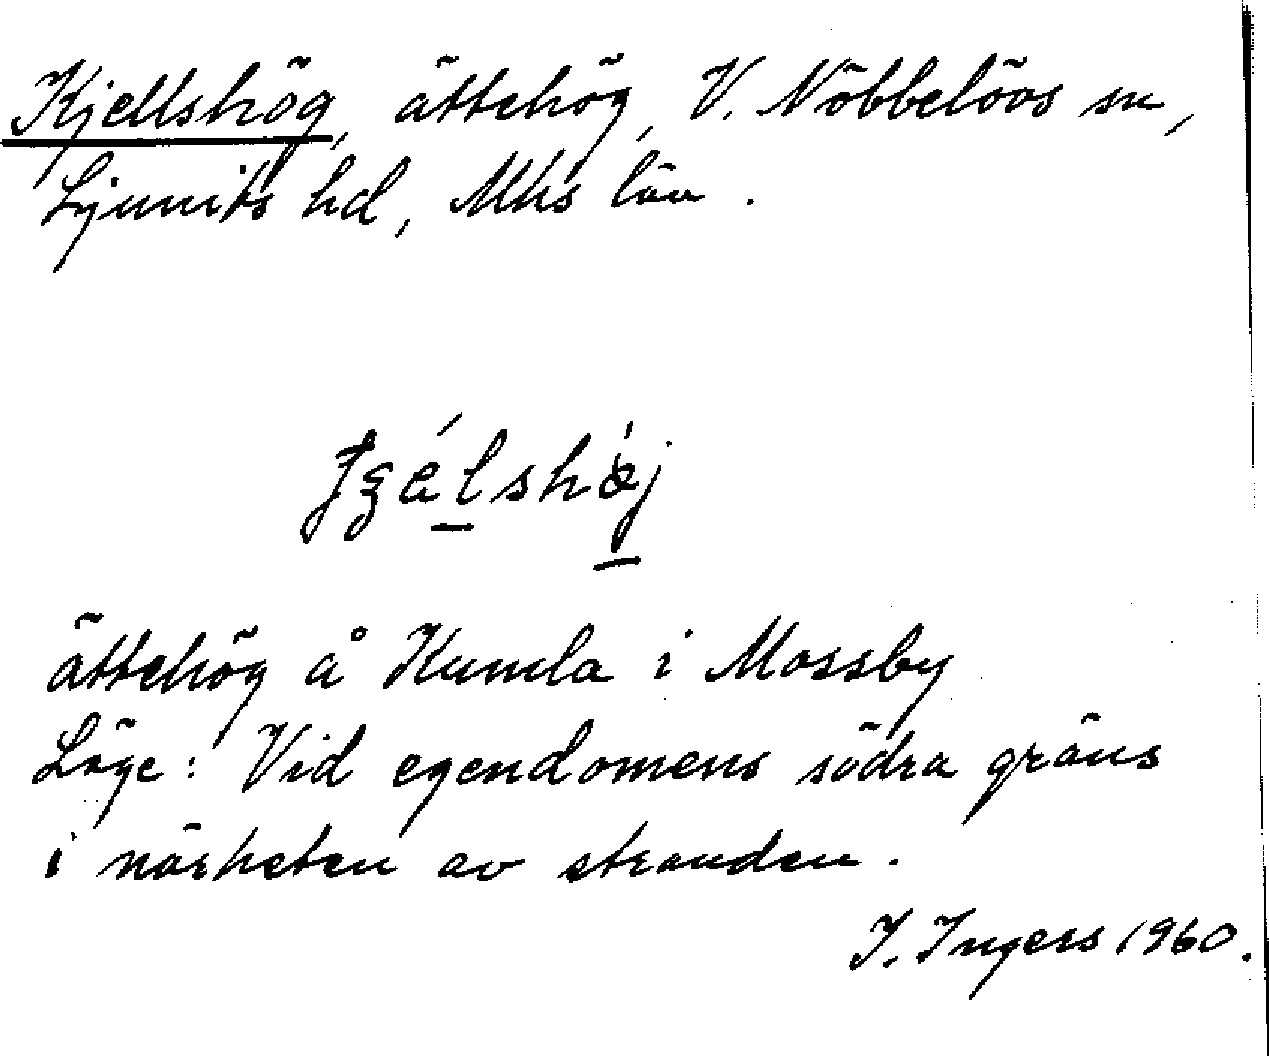 Kjellshög, ättehög, V. Nöbbelövs sn,
Ljunits hd, Mhs län.
ättehög å Kumla i Mossby
Läge: Vid egendomens södra gräns
i närheten av stranden.
I. Ingers 1960.